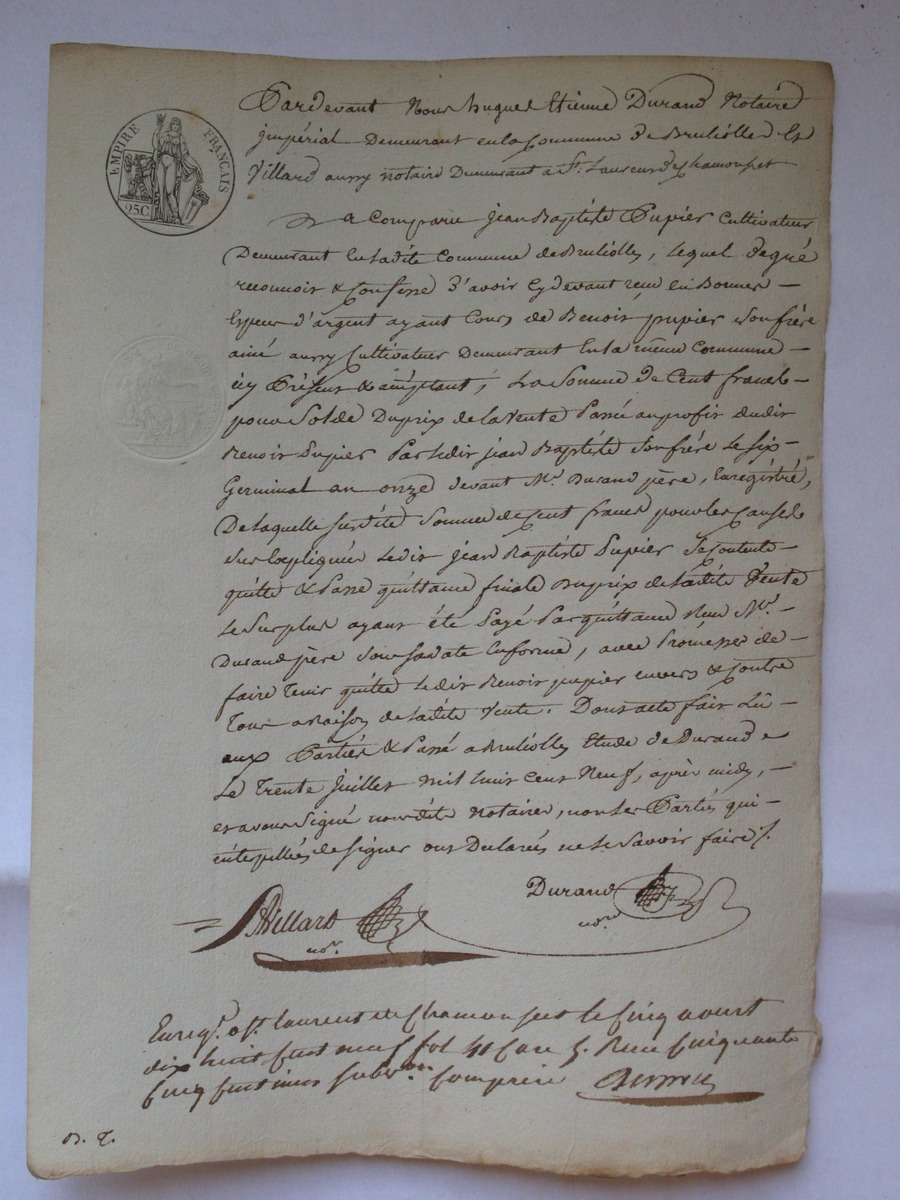 EMPIRE FRANÇAIS
25C
Pardevant Nous hugues Etienne Durand Notaire
jmpérial Demeurant en la Commune de Bruliolles Et
Villard aussy notaire Demeurant a St. Laurent de Chamousset
a Comparu jean Baptiste Pupier Cultivateur
Demeurant En ladite Commune de Bruliolles, lequel de gré
reconnoit & Confesse d'avoir Cydevant reçu En Bonnes
Especes d'argent ayant Cours de Benoit pupier son frère
ainé aussy Cultivateur Demeurant En la même Commune
icy Présent & acceptant, La Somme de Cent francs
pour Solde Du prix de la Vente Passé au profit dudit
Benoit Pupier Par ledit jean Baptiste Son frère Le Six
Germinal an onze devant Me. Durand père, Enregistré,
De laquelle susdite Somme de Cent francs pour les Causes
Sus Expliquées ledit jean Baptiste Pupier Se Contente
quitte & Passe quittance finale Du prix de ladite Vente
Le Surplus ayant été Payé Par quittance Reçu Me.
Durand père Sous Sa date En forme, avec Promesses de
faire tenir quitte ledit Benoit pupier envers & Contre
Tous a Raison de ladite Vente. Dont acte fait Lû
aux Parties & Passé a Bruliolles Etude de Durand
Le Trente juillet mil huit Cent Neuf, après midy,
et avons Signé nousdits Notaires, non les Parties qui
interpellées de Signer ont Déclarés ne le Savoir faire /.
Durand
nore
Villard
nore.
Enregé. a St. laurent de Chamousset le Cinq aout
dix huit Cent neuf fol 41 Case 5. Reçu Cinquante
Cinq Centimes Subvon Comprise
B. P.